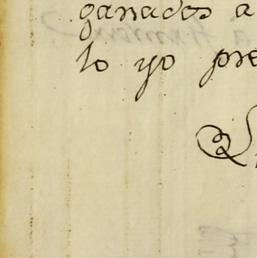 ganados a
lo yo pre